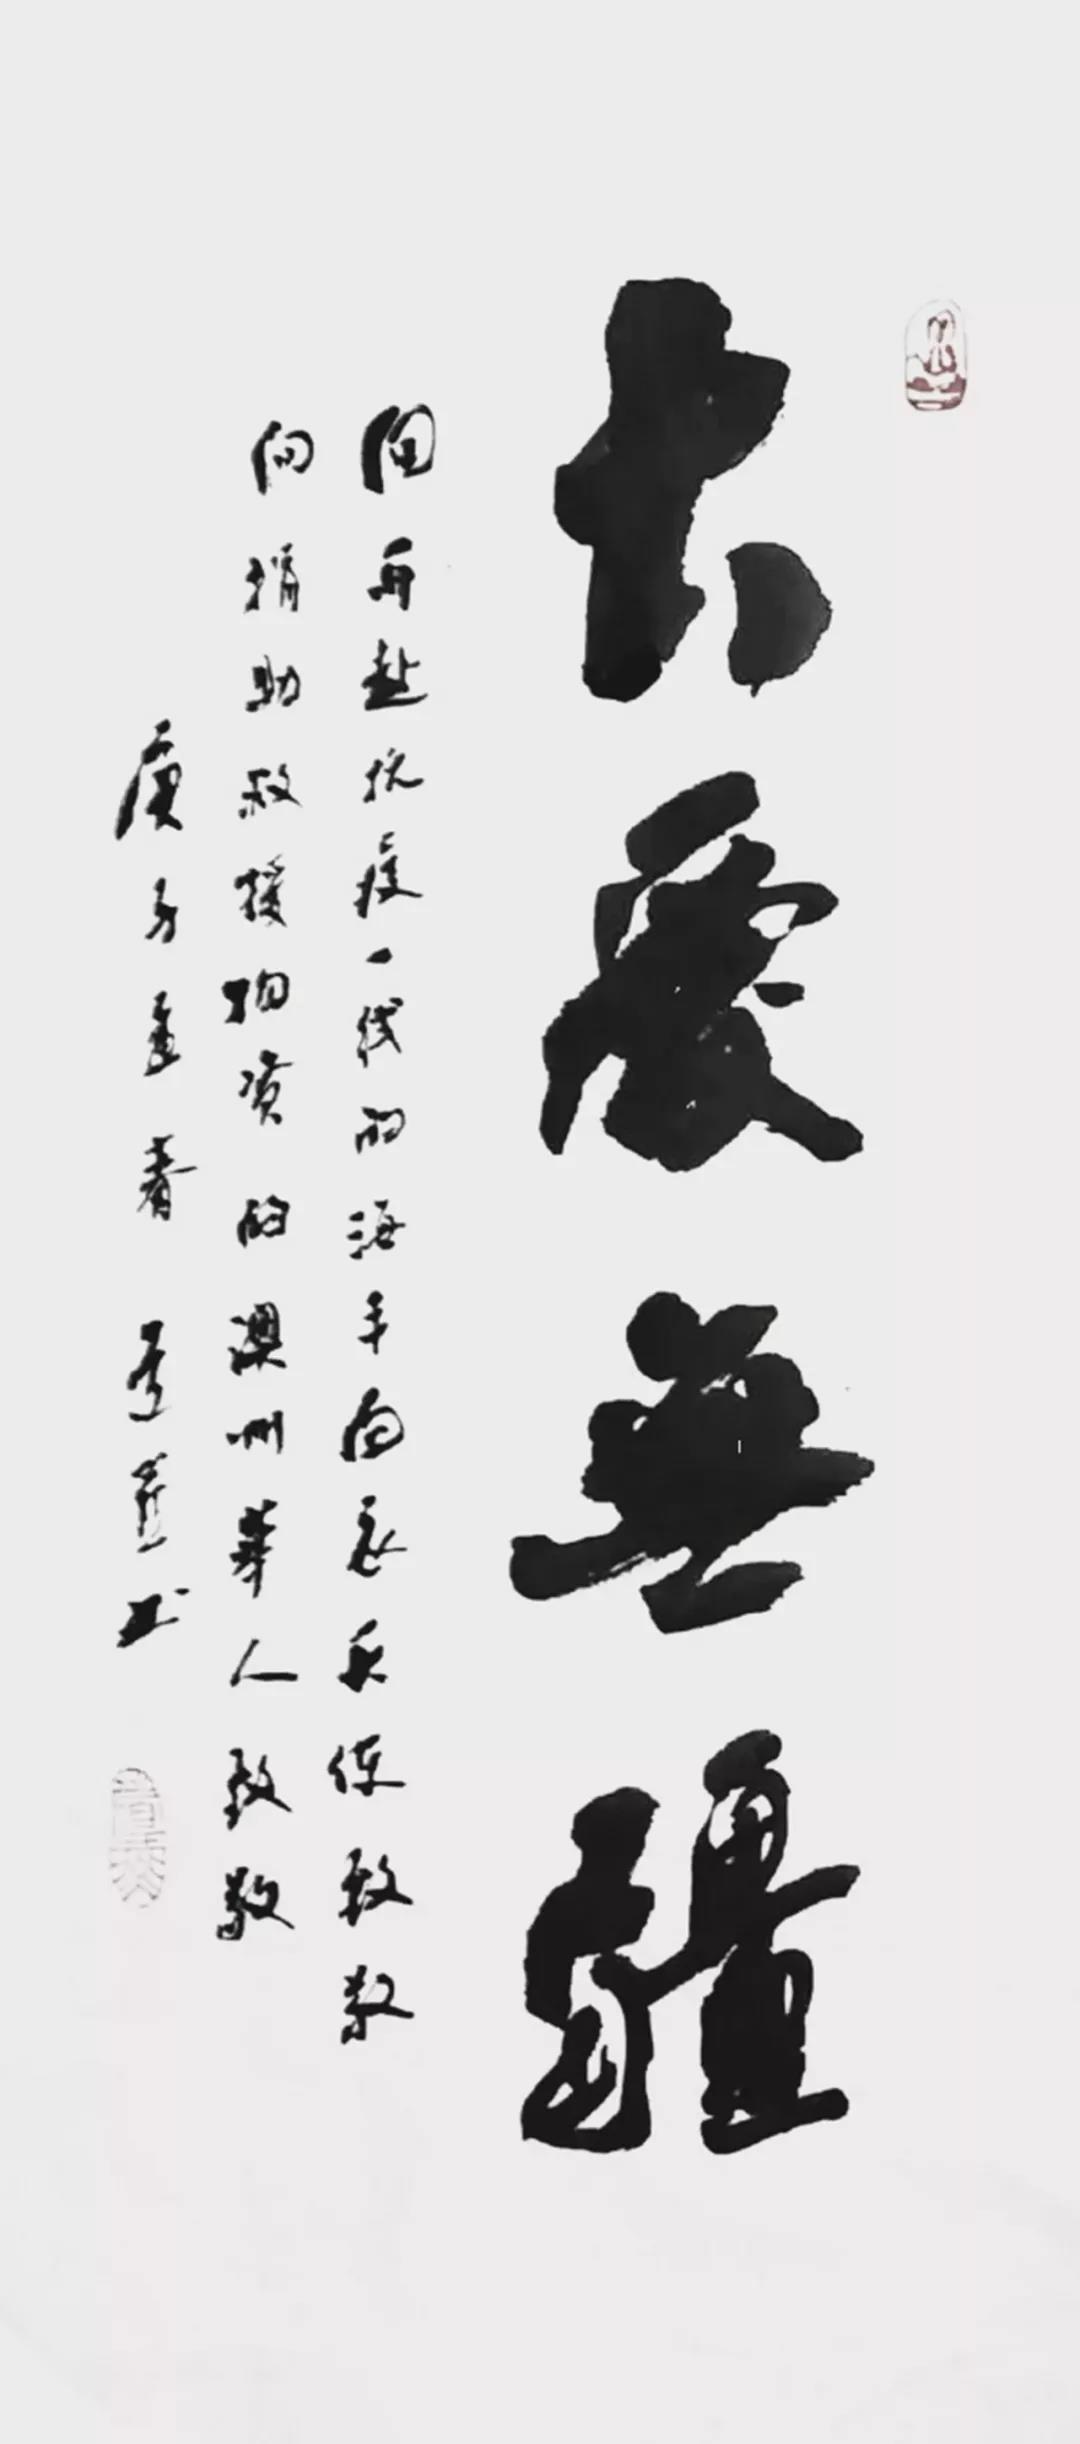 大愛無疆
向再赴抗疫一线的海丰白衣天使致敬
向捐助救援物资的澳洲華人致敬
庚子孟春 书